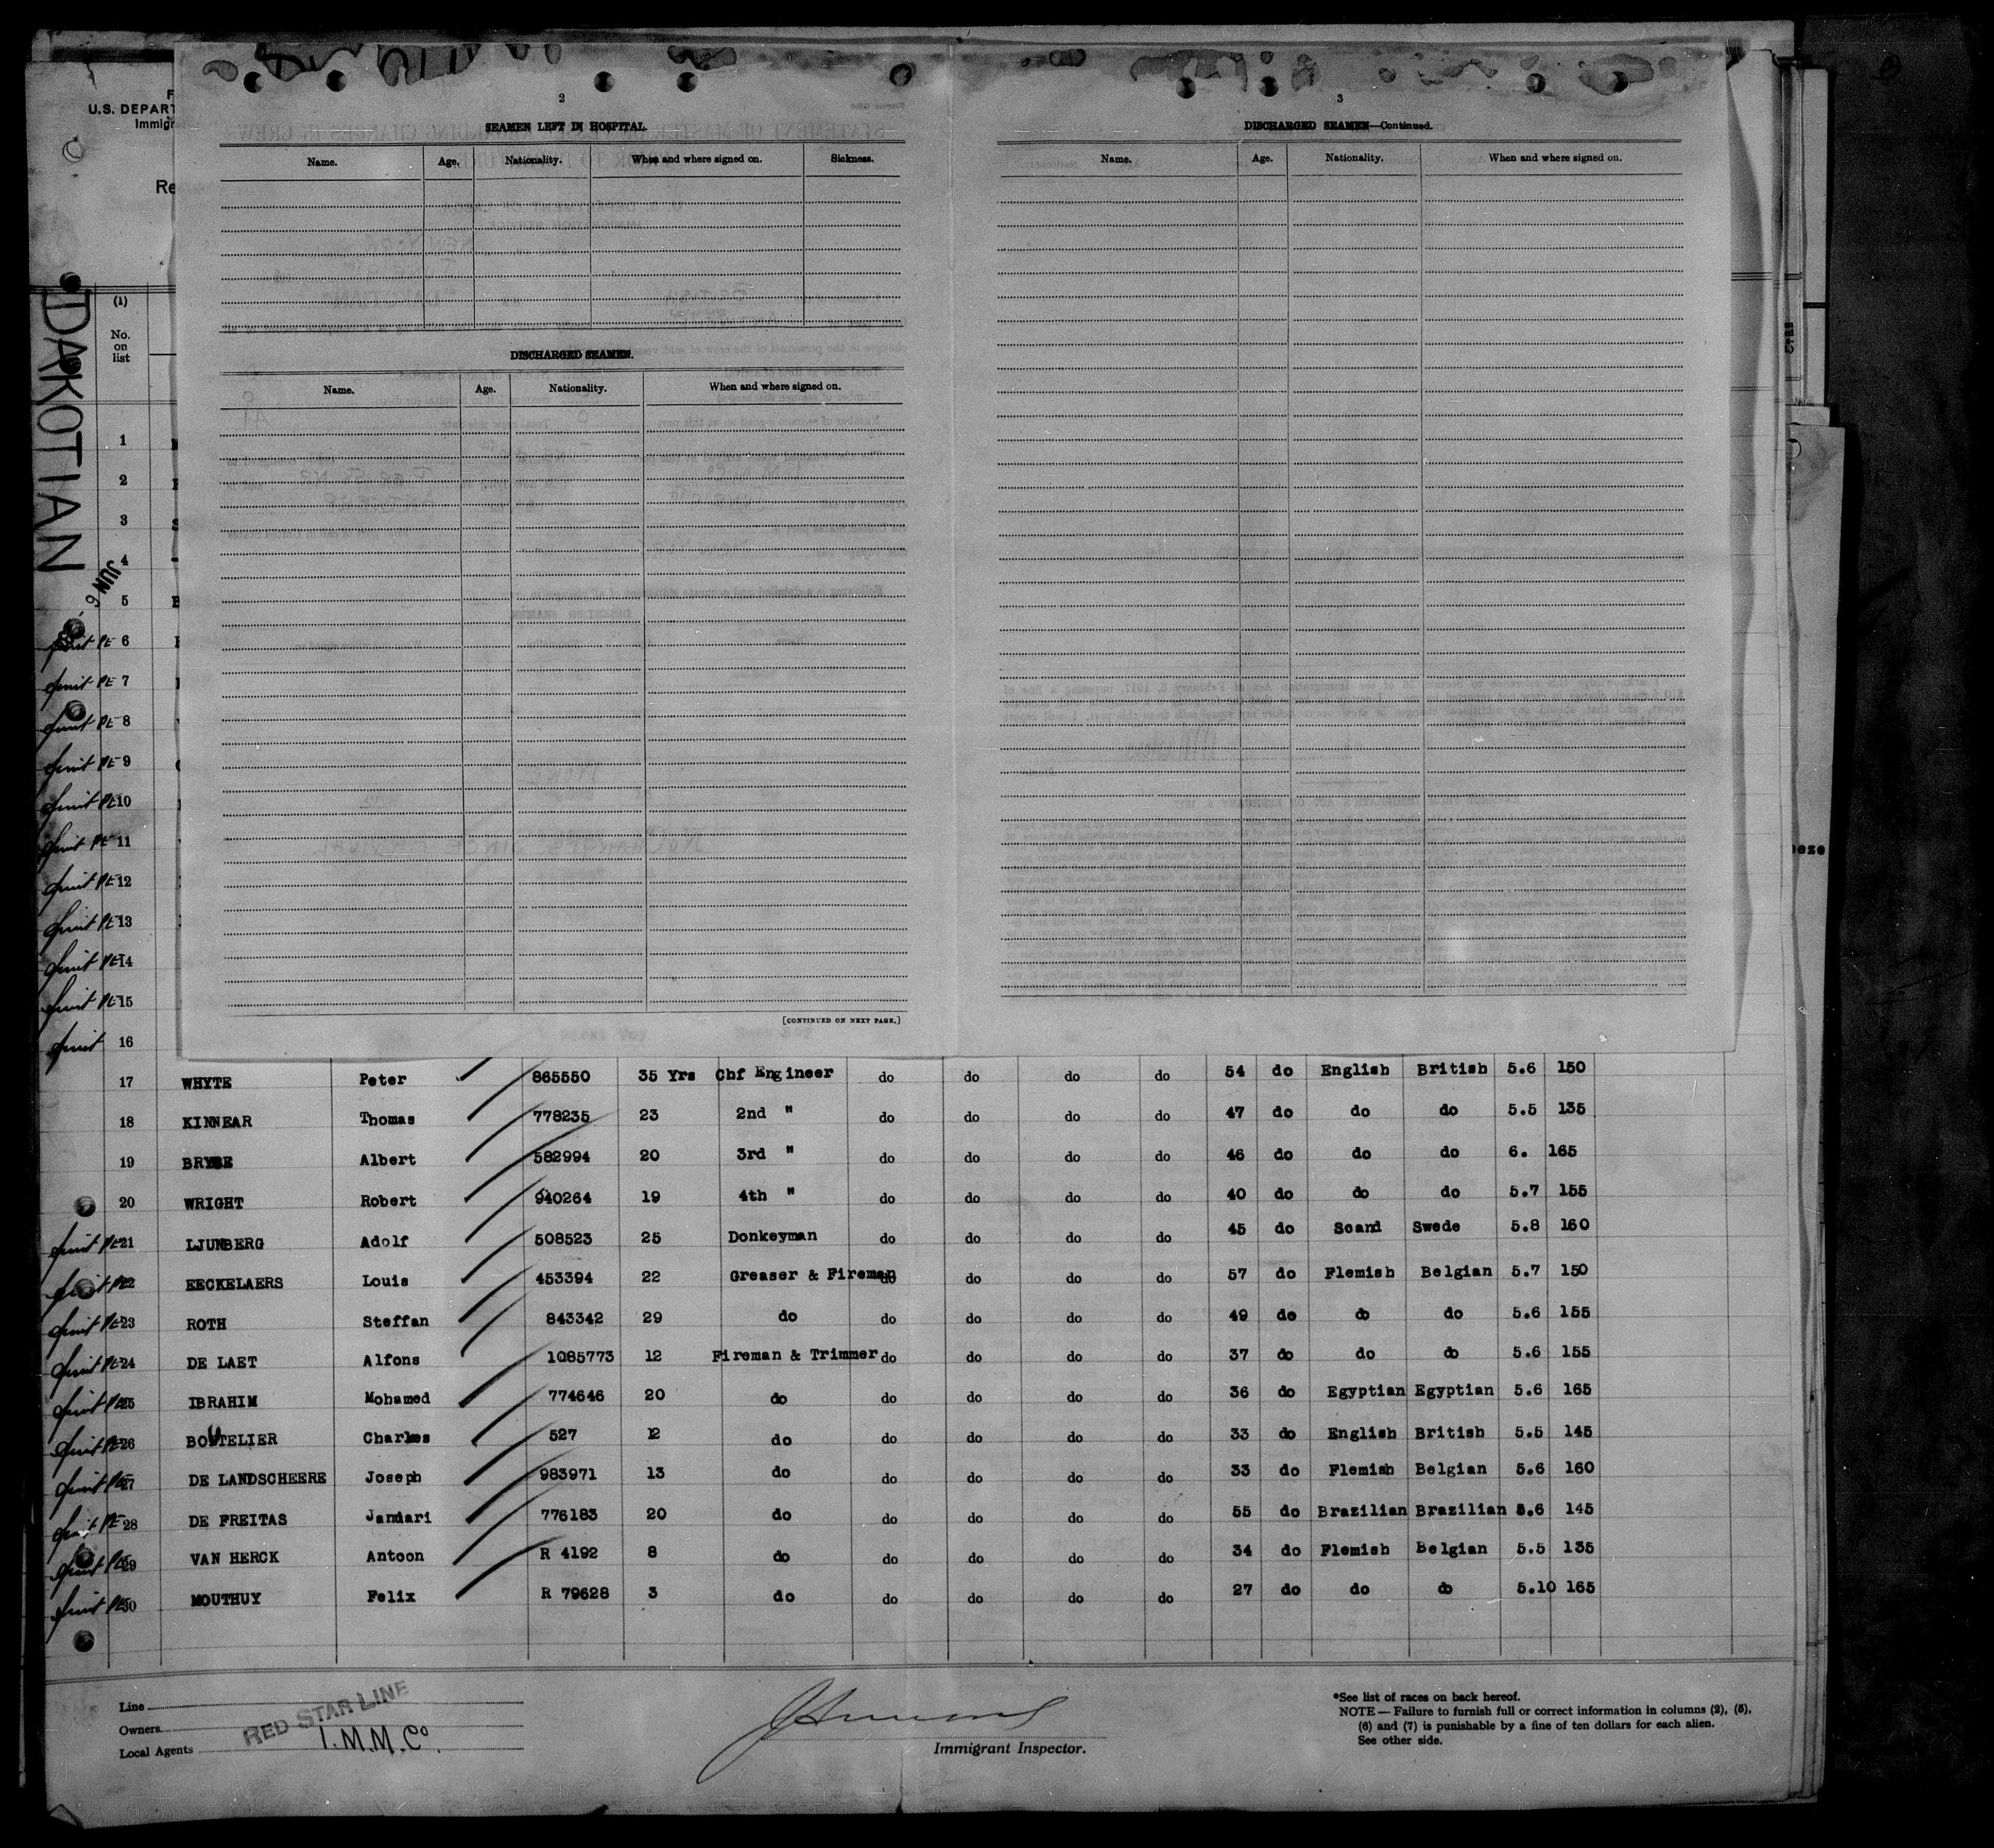 U.S. DEPART
Immigr
Re
DAKOTIAN
JUN 6
2
SEAMEN LEFT IN HOSPITAL.
Name. Age. Nationality. When and where signed on. Sickness.
DISCHARGED SEAMEN.
Name. Age. Nationality. When and where signed on.
[CONTINUED ON NEXT PAGE.]
3
DISCHARGED SEAMEN—Continued.
Name. Age. Nationality. When and where signed on.
(1)
No. on list
1
2
3
4
5
6
7
8
9
10
11
12
13
14
15
16
17 WHYTE Peter 865550 35 Yrs Chf Engineer do do do do 54 do English British 5.6 150
18 KINNEAR Thomas 778235 23 2nd " do do do do 47 do do do 5.5 135
19 Albert 582994 20 3rd " do do do do 46 do do do 6. 165
20 WRIGHT Robert 940264 19 4th " do do do do 40 do do do 5.7 155
21 LJUNBERG Adolf 508523 25 Donkeyman do do do do 45 do Scand Swede 5.8 160
22 EECKELAERS Louis 453394 22 Greaser & Fireman do do do do 57 do Flemish Belgian 5.7 150
23 ROTH Steffan 843342 29 do do do do do 49 do do do 5.6 155
24 DE LAET Alfons 1085773 12 Fireman & Trimmer do do do do 37 do do do 5.6 155
25 IBRAHIM Mohamed 774646 20 do do do do do 36 do Egyptian Egyptian 5.6 165
26 BOUTELIER Charles 527 12 do do do do do 33 do English British 5.5 145
27 DE LANDSCHEERE Joseph 983971 13 do do do do do 33 do Flemish Belgian 5.6 160
28 DE FREITAS Januari 776183 20 do do do do do 55 do Brazilian Brazilian 5.6 145
29 VAN HERCK Antoon R 4192 8 do do do do do 34 do Flemish Belgian 5.5 135
30 MOUTHUY Felix R 79628 3 do do do do do 27 do do do 5.10 165
Line
Owners RED STAR LINE
Local Agents I.M.M.Co.
Immigrant Inspector.
*See list of races on back hereof.
NOTE — Failure to furnish full or correct information in columns (2), (5),
(6) and (7) is punishable by a fine of ten dollars for each alien.
See other side.